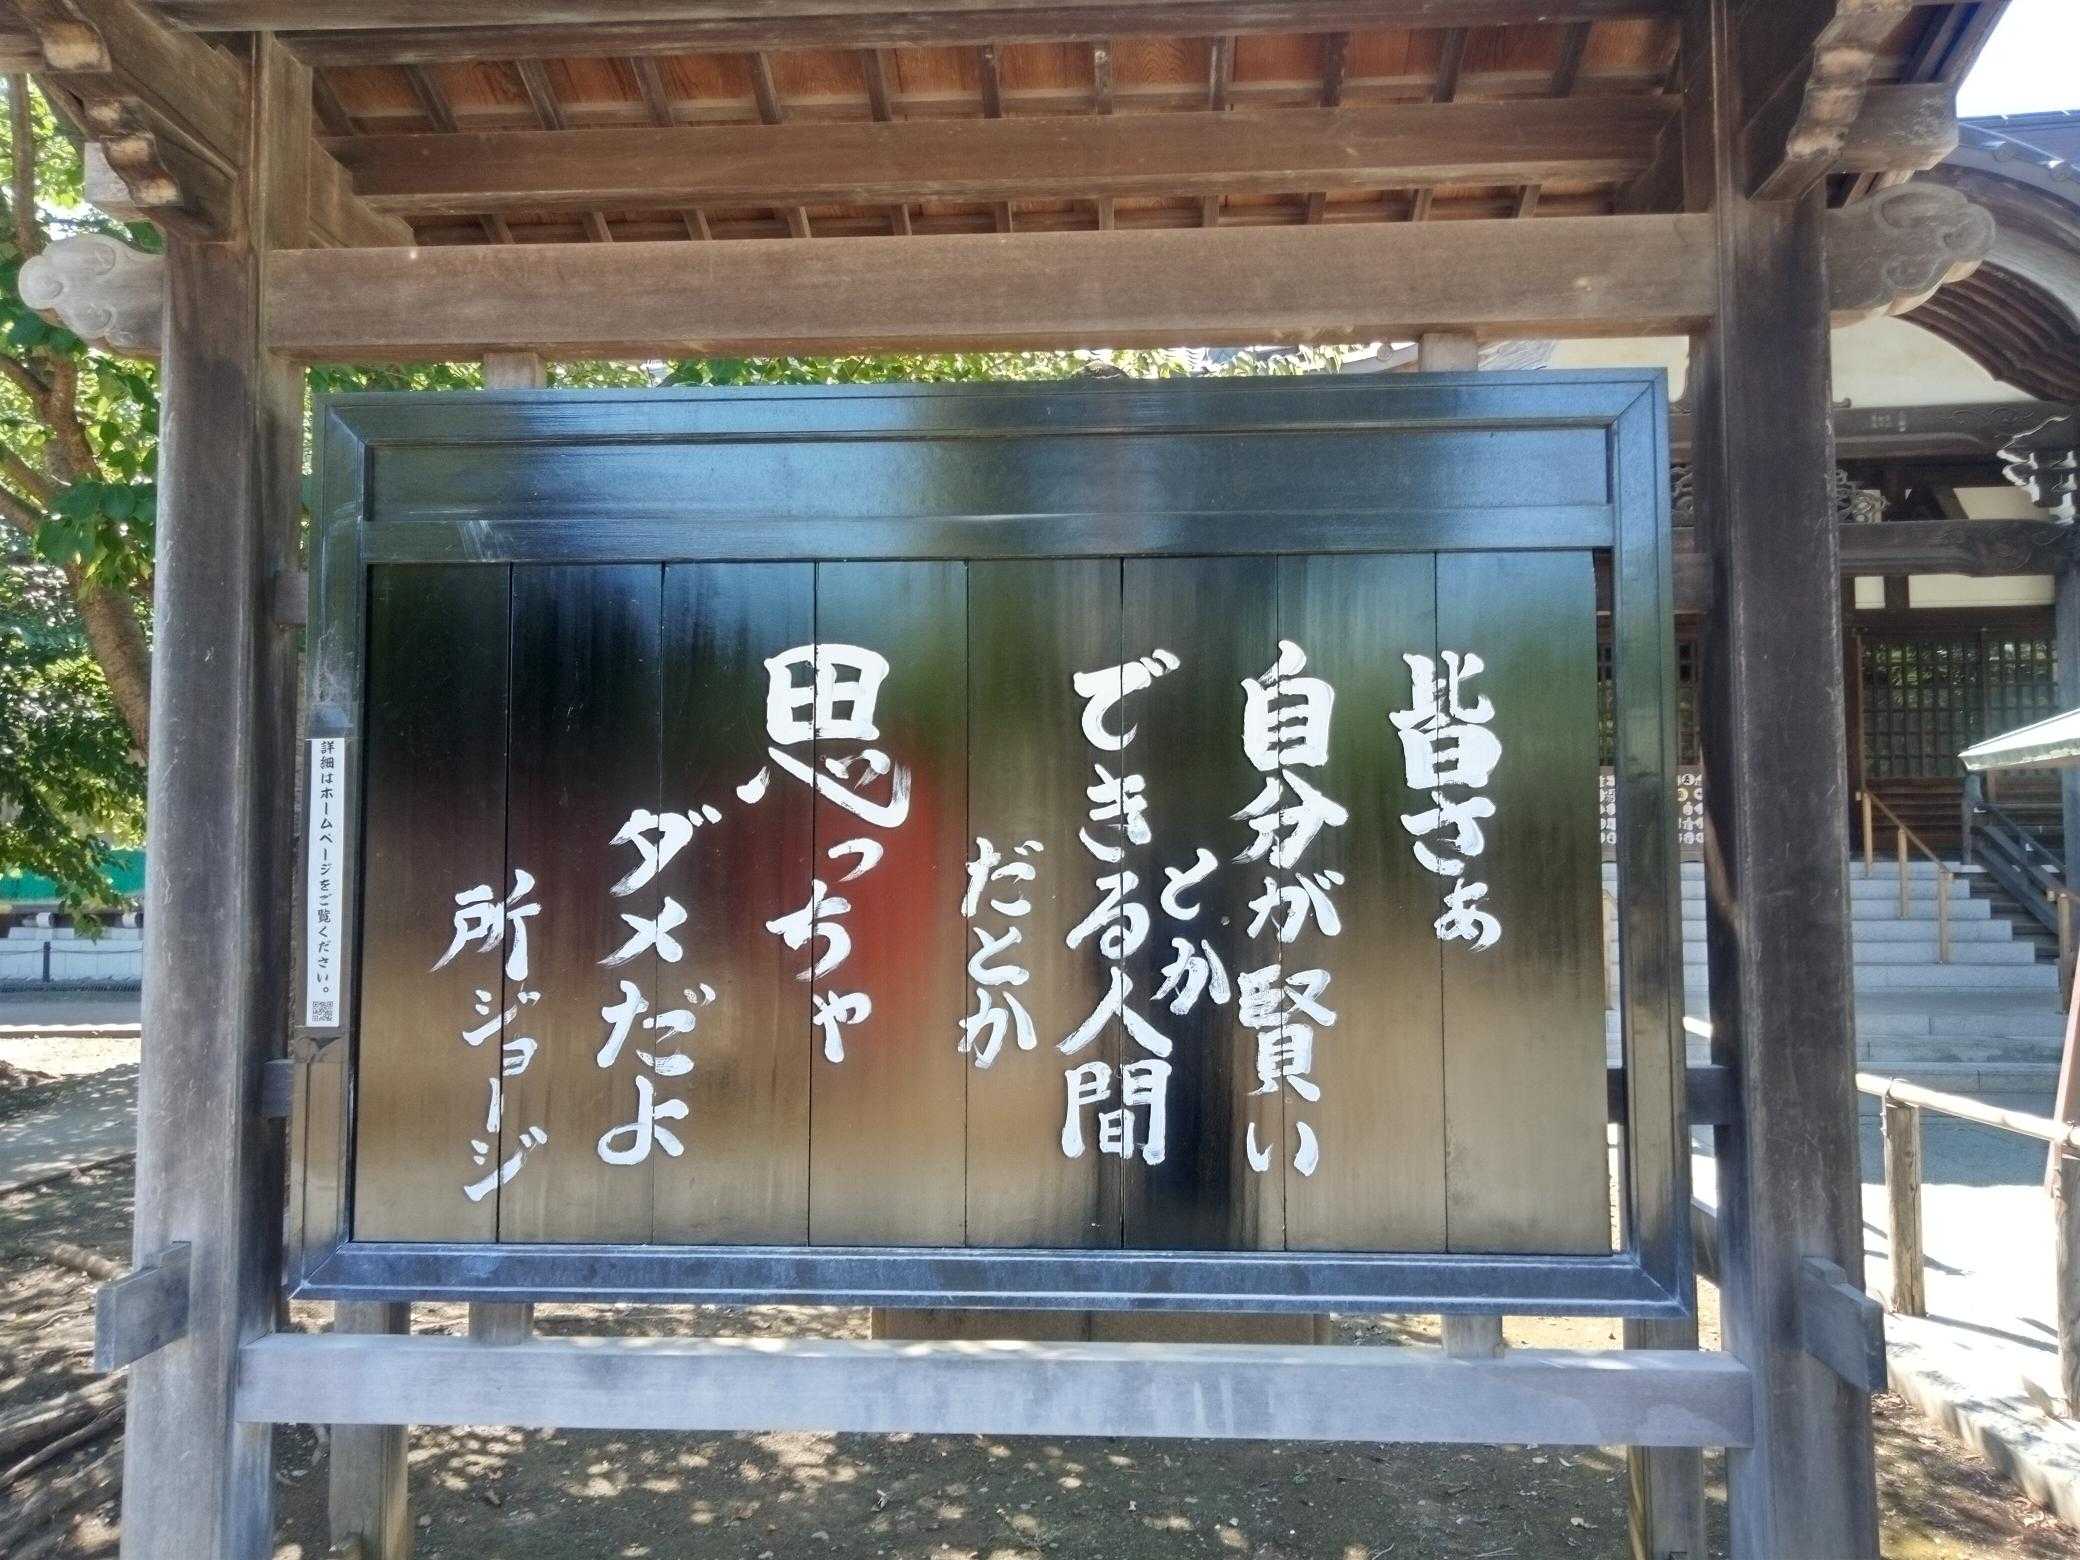 皆さぁ
自分が賢い
とか
できる人間
だとか
思っちゃ
ダメだよ
所ジョージ
詳細はホームページをご覧ください。